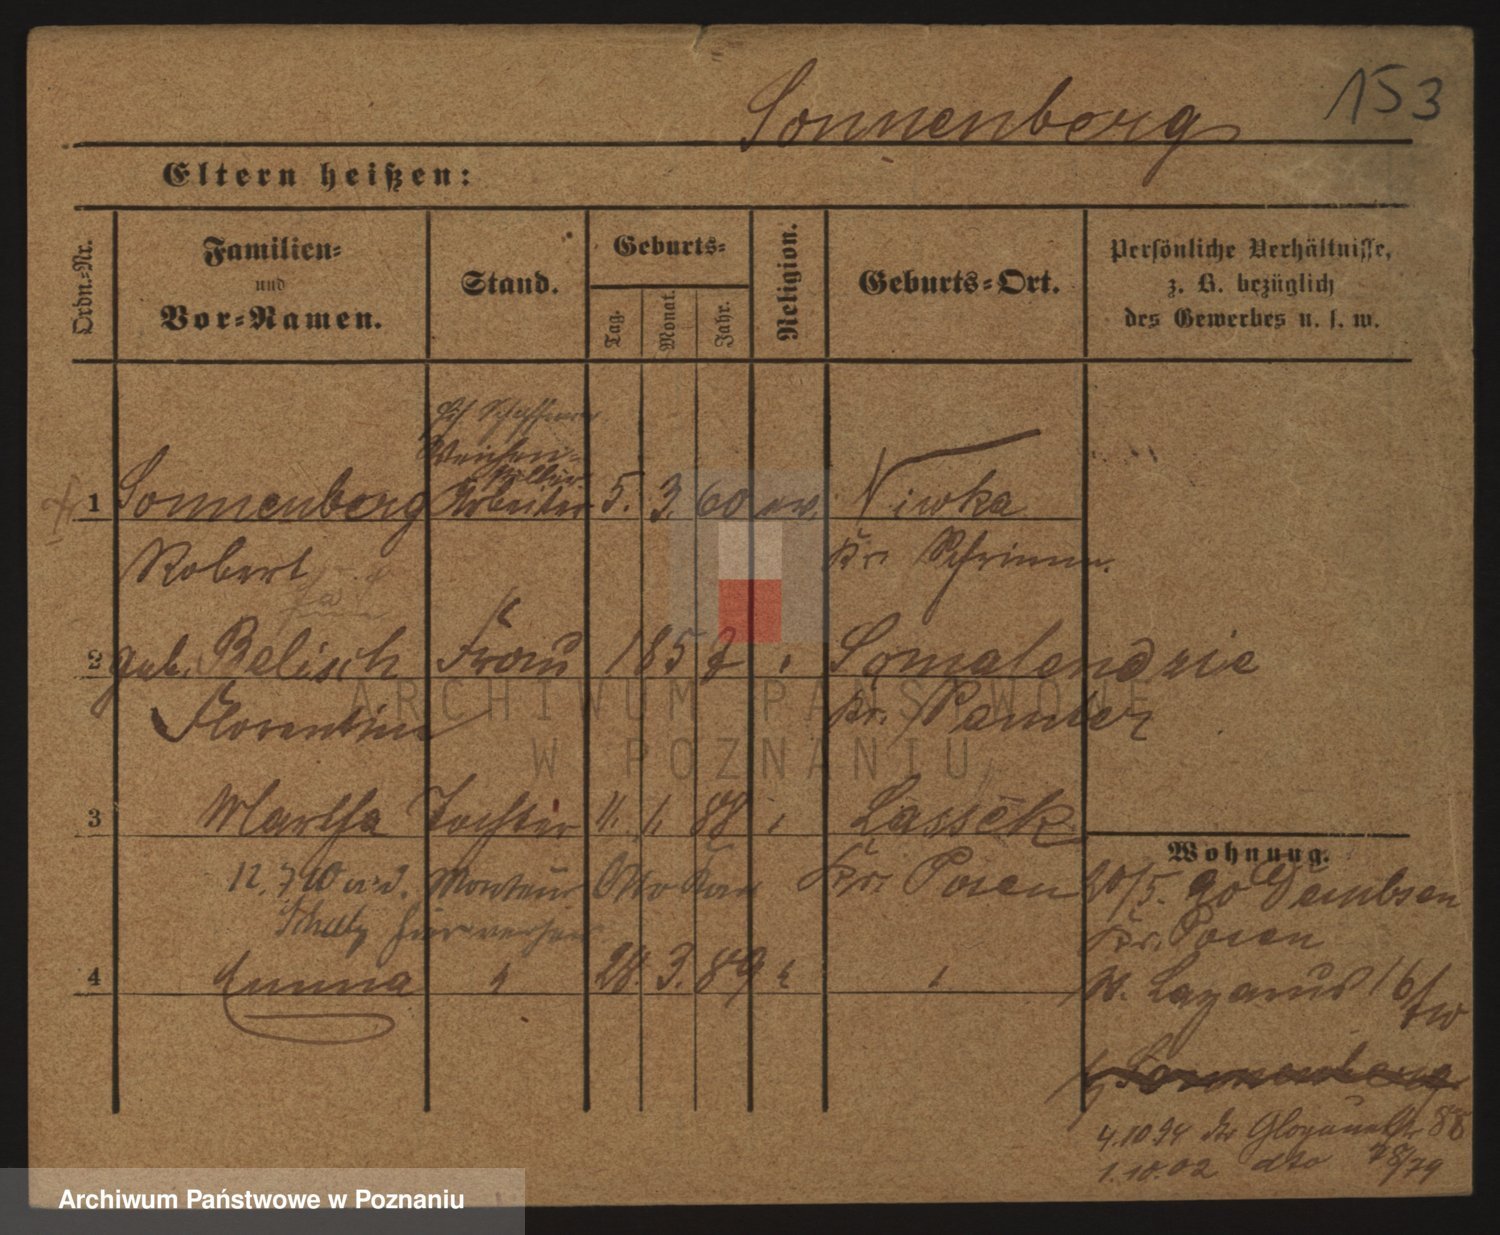 Sonnenberg 153
Eltern heißen:
Ordn.-Nr.
Familien-
und
Vor-Namen.
Stand.
Geburts-
Tag.
Monat.
Jahr.
Religion.
Geburts-Ort.
Persönliche Verhältnisse,
z. B. bezüglich
des Gewerbes u. s. w.
Weichen-
steller
1 Sonnenberg Arbeiter 5. 3. 60 ev. Niwka
Robert Kr. Schrimm.
2 geb. Belisch Frau 1857 Lomalendzie
Florentine Kr. Samter
3 Martha Tochter 11. 1. 88 Lassek
Kr. Posen
12. 7 10 Monteur Otto Karl
Schultz
4 Emma 28. 3. 89
Wohnung.
20/5. 90 Dembsen
Kr. Posen
St. Lazarus 16/
Sonnenberg
4.10.94 Glogauerstr 88
1.10.02 dto 78/79
ARCHIWUM PAŃSTWOWE
W POZNANIU
Archiwum Państwowe w Poznaniu